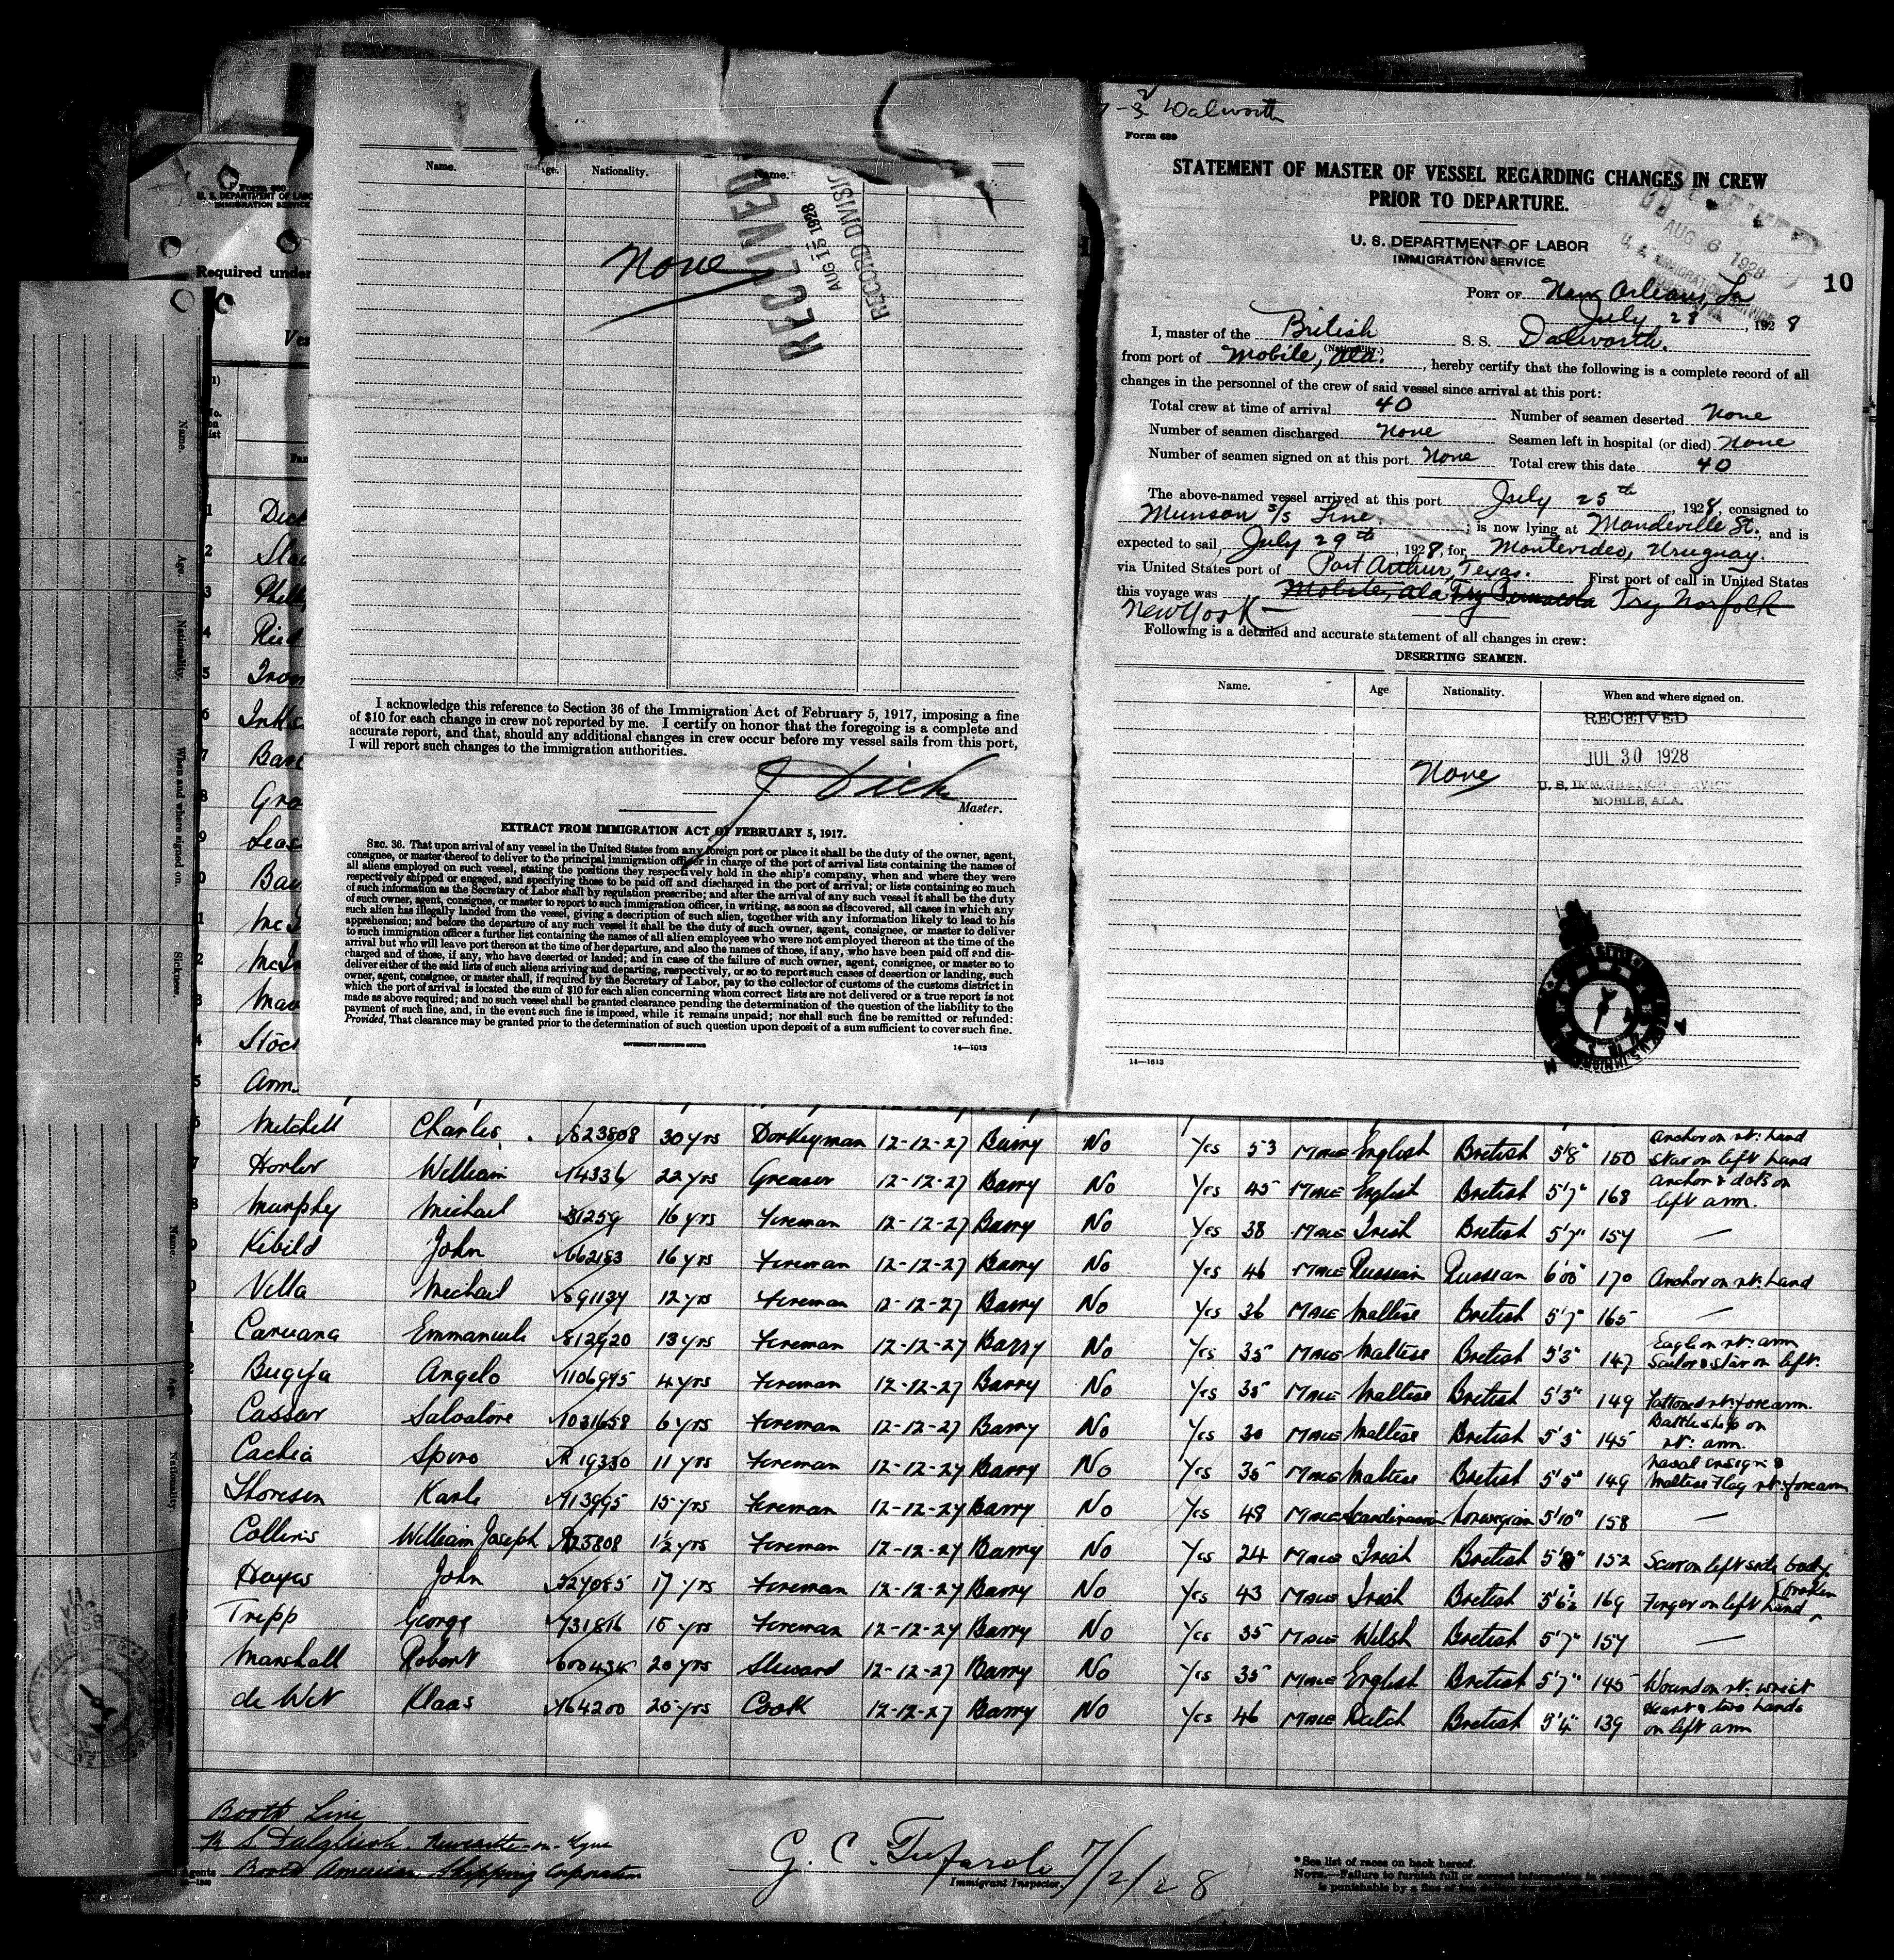 Name. Age. Nationality. Name.
None
RECEIVED
AUG 15 1928
RECORD DIVISIO
I acknowledge this reference to Section 36 of the Immigration Act of February 5, 1917, imposing a fine
of $10 for each change in crew not reported by me. I certify on honor that the foregoing is a complete and
accurate report, and that, should any additional changes in crew occur before my vessel sails from this port,
I will report such changes to the immigration authorities.
J Dick
Master.
EXTRACT FROM IMMIGRATION ACT OF FEBRUARY 5, 1917.
SEC. 36. That upon arrival of any vessel in the United States from any foreign port or place it shall be the duty of the owner, agent,
consignee, or master thereof to deliver to the principal immigration officer in charge of the port of arrival lists containing the names of
all aliens employed on such vessel, stating the positions they respectively hold in the ship's company, when and where they were
respectively shipped or engaged, and specifying those to be paid off and discharged in the port of arrival; or lists containing so much
of such information as the Secretary of Labor shall by regulation prescribe; and after the arrival of any such vessel it shall be the duty
of such owner, agent, consignee, or master to report to such immigration officer, in writing, as soon as discovered, all cases in which any
such alien has illegally landed from the vessel, giving a description of such alien, together with any information likely to lead to his
apprehension; and before the departure of any such vessel it shall be the duty of such owner, agent, consignee, or master to deliver
to such immigration officer a further list containing the names of all alien employees who were not employed thereon at the time of the
arrival but who will leave port thereon at the time of her departure, and also the names of those, if any, who have been paid off and dis-
charged and of those, if any, who have deserted or landed; and in case of the failure of such owner, agent, consignee, or master so to
deliver either of the said lists of such aliens arriving and departing, respectively, or so to report such cases of desertion or landing, such
owner, agent, consignee, or master shall, if required by the Secretary of Labor, pay to the collector of customs of the customs district in
which the port of arrival is located the sum of $10 for each alien concerning whom correct lists are not delivered or a true report is not
made as above required; and no such vessel shall be granted clearance pending the determination of the question of the liability to the
payment of such fine, and, in the event such fine is imposed, while it remains unpaid; nor shall such fine be remitted or refunded:
Provided, That clearance may be granted prior to the determination of such question upon deposit of a sum sufficient to cover such fine.
GOVERNMENT PRINTING OFFICE 14—1613
Dalworth
Form 689
STATEMENT OF MASTER OF VESSEL REGARDING CHANGES IN CREW
PRIOR TO DEPARTURE.
U. S. DEPARTMENT OF LABOR
IMMIGRATION SERVICE
AUG 6 1928
10
PORT OF New Orleans, La
July 28, 1928
I, master of the British S. S. Dalworth.
(Nationality.)
from port of Mobile, Ala., hereby certify that the following is a complete record of all
changes in the personnel of the crew of said vessel since arrival at this port:
Total crew at time of arrival 40 Number of seamen deserted None
Number of seamen discharged None Seamen left in hospital (or died) None
Number of seamen signed on at this port None Total crew this date 40
The above-named vessel arrived at this port July 25th, 1928, consigned to
Munson S/S Line; is now lying at Mandeville St., and is
expected to sail July 29th, 1928, for Montevideo, Uruguay.
via United States port of Port Arthur, Texas. First port of call in United States
this voyage was Mobile, Ala Try Pensacola Try Norfolk
New York
Following is a detailed and accurate statement of all changes in crew:
DESERTING SEAMEN.
Name. Age Nationality. When and where signed on.
None
RECEIVED
JUL 30 1928
U. S. IMMIGRATION SERVICE
MOBILE, ALA.
14—1613
Form 689
U. S. DEPARTMENT OF LABO
IMMIGRATION SERVICE
Required under
Ves
Name. Age. Nationality. When and where signed on. Sickness.
1 Dick
2 Slac
3 Phill
4 Rid
5 Iron
6
7 Bar
8 Gra
9 Leas
0 Bai
1 McI
2 McIn
3 Mav
4 Stoc
5 Arm
Mitchell Charles 823808 30 yrs Donkeyman 12-12-27 Barry No Yes 53 Male English British 5'8" 150 Anchor on rt: hand
Star on left hand
7 Horler William 14336 22 yrs Greaser 12-12-27 Barry No Yes 45 Male English British 5'7" 168 Anchor & dots on
left arm.
8 Murphy Michael 31259 16 yrs Fireman 12-12-27 Barry No Yes 38 Male Irish British 5'7" 154 —
9 Kibild John 662183 16 yrs Fireman 12-12-27 Barry No Yes 46 Male Russian Russian 6'00" 170 Anchor on rt: hand
0 Vella Michael 891134 12 yrs Fireman 12-12-27 Barry No Yes 36 Male Maltese British 5'7" 165 —
1 Caruana Emmanuele 812920 13 yrs Fireman 12-12-27 Barry No Yes 35 Male Maltese British 5'3" 147 Eagle on rt: arm
Sailor & star on left.
2 Bugeja Angelo 1106995 4 yrs Fireman 12-12-27 Barry No Yes 35 Male Maltese British 5'3" 149 Tattooed rt: forearm.
Cassar Salvatore 1031658 6 yrs Fireman 12-12-27 Barry No Yes 30 Male Maltese British 5'3" 145 Battleship on
rt: arm.
Cachia Spiro R 19330 11 yrs Fireman 12-12-27 Barry No Yes 35 Male Maltese British 5'5" 149 Naval ensign &
Maltese Flag rt: forearm
Thoresen Karle 413995 15 yrs Fireman 12-12-27 Barry No Yes 48 Male Scandinavian Norwegian 5'10" 158 —
Collins William Joseph 1½ yrs Fireman 12-12-27 Barry No Yes 24 Male Irish British 5'8" 152 Scar on left side body.
Hayes John 17 yrs Fireman 12-12-27 Barry No Yes 43 Male Irish British 5'6½" 169 Finger on left hand broken
Tripp George 731816 15 yrs Fireman 12-12-27 Barry No Yes 35 Male Welsh British 5'7" 154 —
Marshall Robert 600434 20 yrs Steward 12-12-27 Barry No Yes 35 Male English British 5'7" 145 Wound on rt: wrist
de Wit Klaas 464200 25 yrs Cook 12-12-27 Barry No Yes 46 Male Dutch British 5'4" 139 Heart & two hands
on left arm
Booth Line
R S Dalgliesh. Newcastle-on-Tyne
Agents Booth American Shipping Corporation
G. C. Tufarolo 7/2/28
Immigrant Inspector.
*See list of races on back hereof.
NOTE.—Failure to furnish full or
is punishable by a fine of